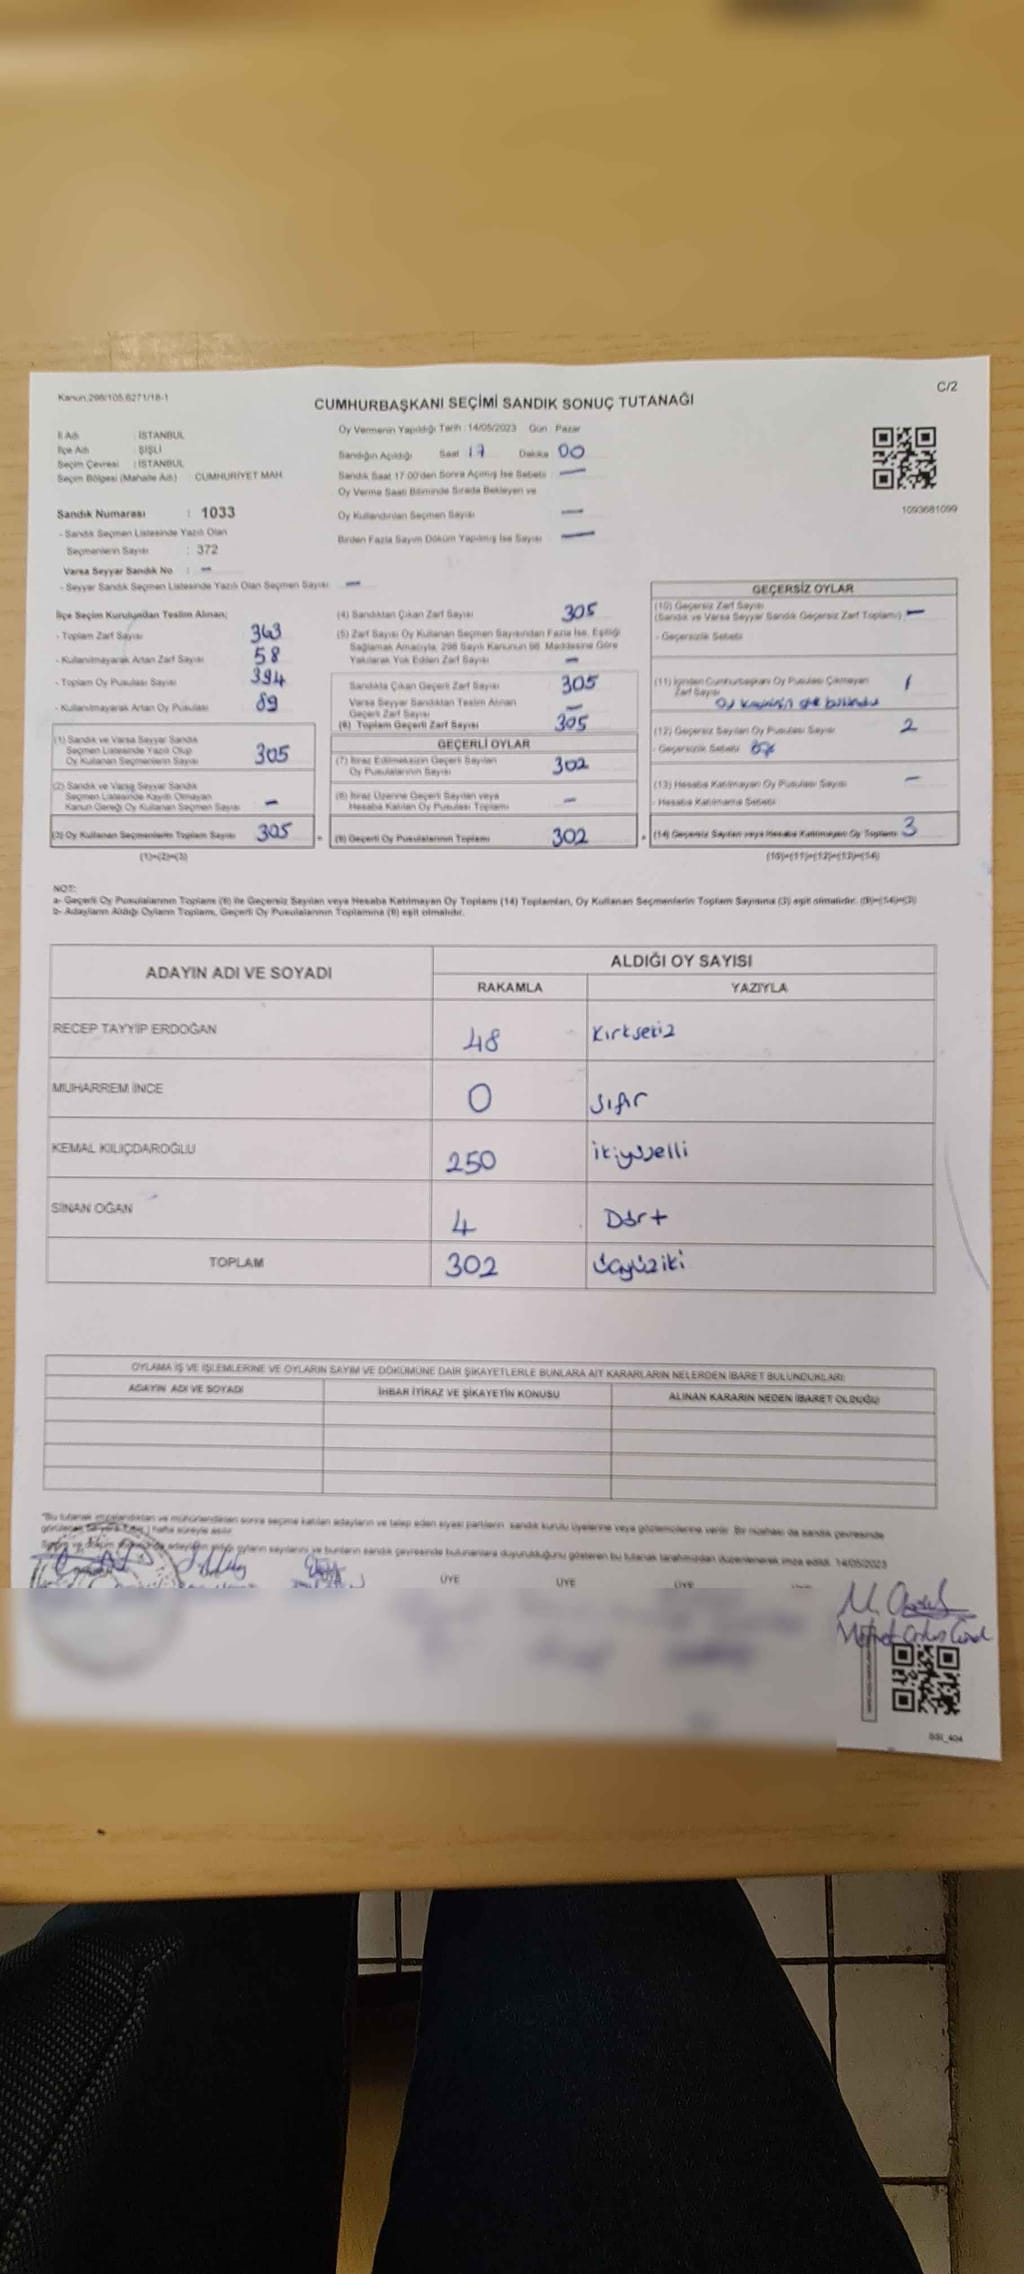 Kanun:298/105,6271/18-1
C/2
CUMHURBAŞKANI SEÇİMİ SANDIK SONUÇ TUTANAĞI
İl Adı : İSTANBUL
İlçe Adı : ŞİŞLİ
Seçim Çevresi : İSTANBUL
Seçim Bölgesi (Mahalle Adı) : CUMHURİYET MAH.
Sandık Numarası : 1033
- Sandık Seçmen Listesinde Yazılı Olan
Seçmenlerin Sayısı : 372
Varsa Seyyar Sandık No : -
- Seyyar Sandık Seçmen Listesinde Yazılı Olan Seçmen Sayısı -
Oy Vermenin Yapıldığı Tarih : 14/05/2023 Gün : Pazar
Sandığın Açıldığı Saat 17 Dakika 00
Sandık Saat 17:00'den Sonra Açılmış İse Sebebi : -
Oy Verme Saati Bitiminde Sırada Bekleyen ve
Oy Kullandırılan Seçmen Sayısı -
Birden Fazla Sayım Döküm Yapılmış İse Sayısı -
1093681099
İlçe Seçim Kurulundan Teslim Alınan;
- Toplam Zarf Sayısı 363
- Kullanılmayarak Artan Zarf Sayısı 58
- Toplam Oy Pusulası Sayısı 394
- Kullanılmayarak Artan Oy Pusulası 89
(1) Sandık ve Varsa Seyyar Sandık
Seçmen Listesinde Yazılı Olup
Oy Kullanan Seçmenlerin Sayısı 305
(2) Sandık ve Varsa Seyyar Sandık
Seçmen Listesinde Kayıtlı Olmayan
Kanun Gereği Oy Kullanan Seçmen Sayısı -
(3) Oy Kullanan Seçmenlerin Toplam Sayısı 305
(1)+(2)=(3)
(4) Sandıktan Çıkan Zarf Sayısı 305
(5) Zarf Sayısı Oy Kullanan Seçmen Sayısından Fazla İse, Eşitliği
Sağlamak Amacıyla, 298 Sayılı Kanunun 98. Maddesine Göre
Yakılarak Yok Edilen Zarf Sayısı -
Sandıkta Çıkan Geçerli Zarf Sayısı 305
Varsa Seyyar Sandıktan Teslim Alınan
Geçerli Zarf Sayısı -
(6) Toplam Geçerli Zarf Sayısı 305
GEÇERLİ OYLAR
(7) İtiraz Edilmeksizin Geçerli Sayılan
Oy Pusulalarının Sayısı 302
(8) İtiraz Üzerine Geçerli Sayılan veya
Hesaba Katılan Oy Pusulası Toplamı -
(9) Geçerli Oy Pusulalarının Toplamı 302
GEÇERSİZ OYLAR
(10) Geçersiz Zarf Sayısı
(Sandık ve Varsa Seyyar Sandık Geçersiz Zarf Toplamı) -
- Geçersizlik Sebebi
(11) İçinden Cumhurbaşkanı Oy Pusulası Çıkmayan
Zarf Sayısı 1
(12) Geçersiz Sayılan Oy Pusulası Sayısı 2
- Geçersizlik Sebebi
(13) Hesaba Katılmayan Oy Pusulası Sayısı -
- Hesaba Katılmama Sebebi
(14) Geçersiz Sayılan veya Hesaba Katılmayan Oy Toplamı 3
(10)+(11)+(12)+(13)=(14)
NOT:
a- Geçerli Oy Pusulalarının Toplamı (9) ile Geçersiz Sayılan veya Hesaba Katılmayan Oy Toplamı (14) Toplamları, Oy Kullanan Seçmenlerin Toplam Sayısına (3) eşit olmalıdır. (9)+(14)=(3)
b- Adayların Aldığı Oyların Toplamı, Geçerli Oy Pusulalarının Toplamına (9) eşit olmalıdır.
ADAYIN ADI VE SOYADI
ALDIĞI OY SAYISI
RAKAMLA YAZIYLA
RECEP TAYYİP ERDOĞAN 48 Kırksekiz
MUHARREM İNCE 0 Sıfır
KEMAL KILIÇDAROĞLU 250 ikiyüzelli
SİNAN OĞAN 4 Dört
TOPLAM 302 üçyüziki
OYLAMA İŞ VE İŞLEMLERİNE VE OYLARIN SAYIM VE DÖKÜMÜNE DAİR ŞİKAYETLERLE BUNLARA AİT KARARLARIN NELERDEN İBARET BULUNDUKLARI
ADAYIN ADI VE SOYADI İHBAR İTİRAZ VE ŞİKAYETİN KONUSU ALINAN KARARIN NEDEN İBARET OLDUĞU
*Bu tutanak imzalandıktan ve mühürlendikten sonra seçime katılan adayların ve talep eden siyasi partilerin sandık kurulu üyelerine veya gözlemcilerine verilir. Bir nüshası da sandık çevresinde
hafta süreyle asılır.
oyların sayılarını ve bunların sandık çevresinde bulunanlara duyurulduğunu gösteren bu tutanak tarafımızdan düzenlenerek imza edildi. 14/05/2023
ÜYE ÜYE ÜYE